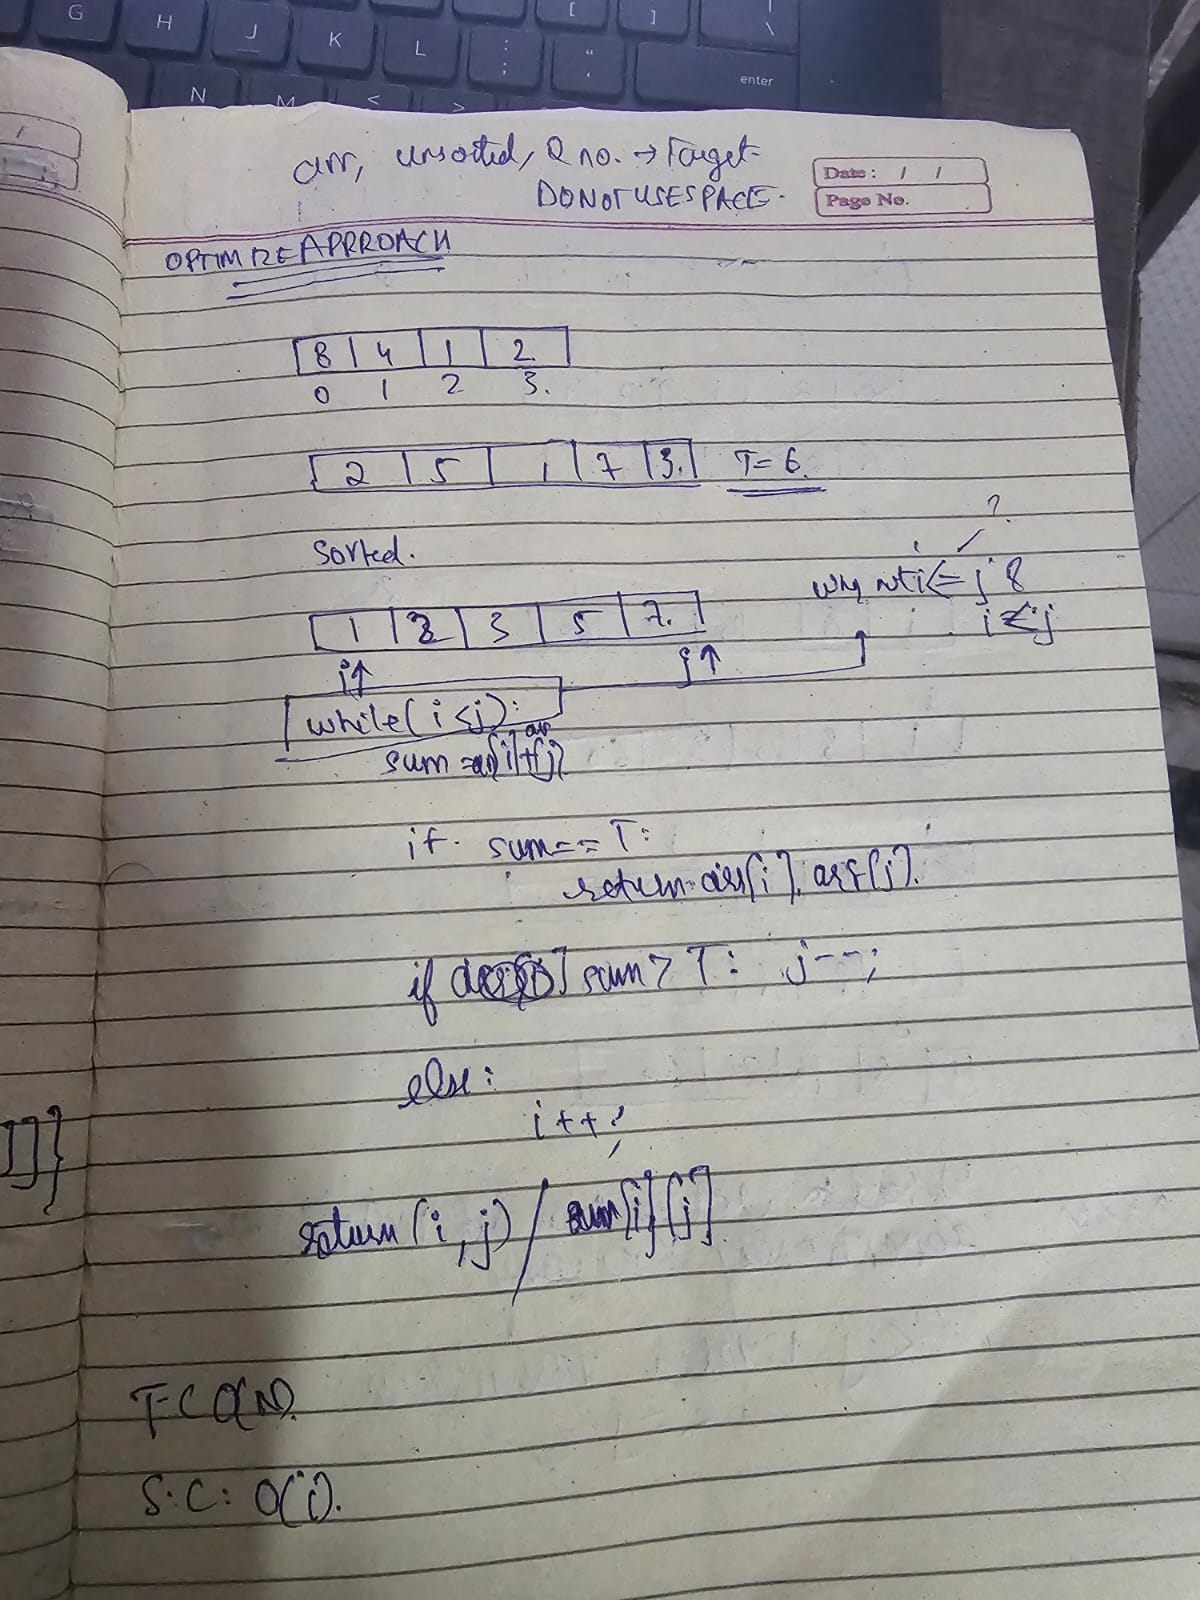 G H J K L : ; " ' [ ] | \
enter
N M < >
arr, unsorted, 2 no. → Target
DO NOT USE SPACE.
Date: / /
Page No.
OPTIMIZE APPROACH
8 4 1 2.
0 1 2 3.
2 5 1 7 3. T= 6.
?
Sorted.
why not i<= j &
i < j
1 2 3 5 7.
i↑ j↑
while(i<j):
sum =arr[i]+arr[j]
if sum== T:
return arr[i], arr[j].
if sum > T: j--;
else:
i++;
return (i, j) / [i][j]
T-C O(N).
S:C: O(i).
]]}